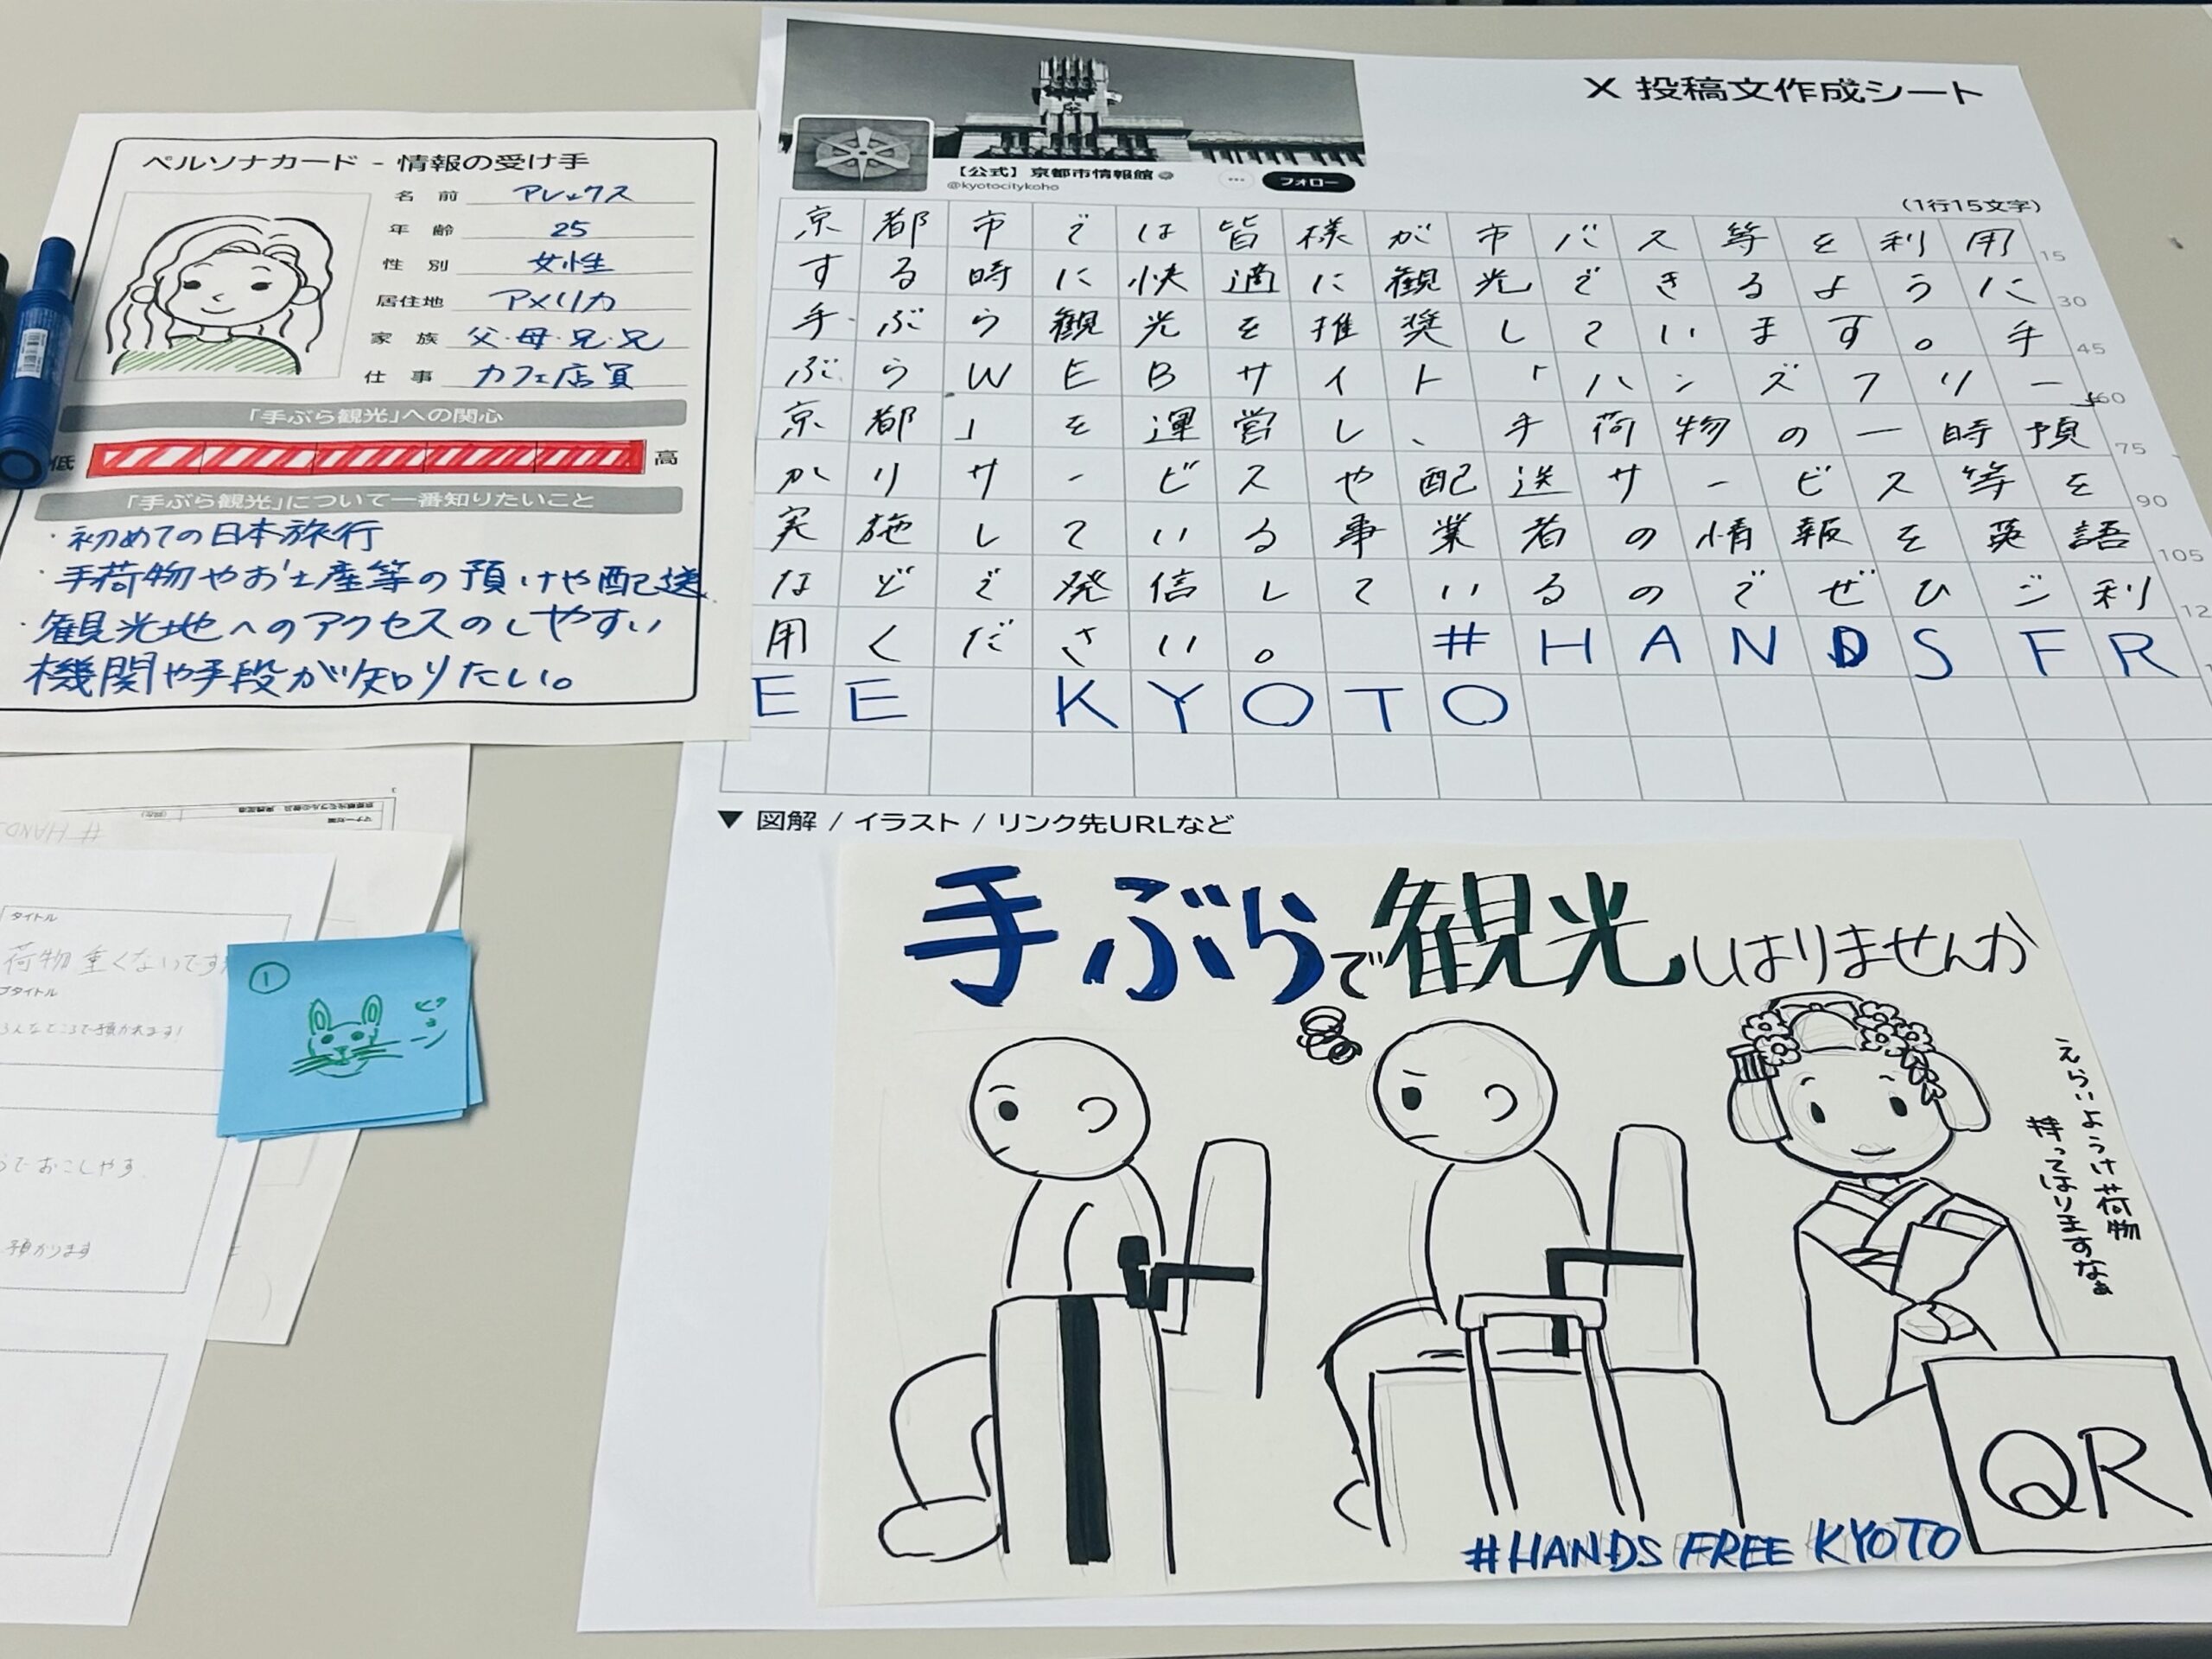 ペルソナカード - 情報の受け手
名前 アレックス
年齢 25
性別 女性
居住地 アメリカ
家族 父・母・兄・兄
仕事 カフェ店員
「手ぶら観光」への関心
低 高
「手ぶら観光」について一番知りたいこと
・初めての日本旅行
・手荷物やお土産等の預けや配送
・観光地へのアクセスのしやすい
機関や手段が知りたい。
X 投稿文作成シート
【公式】京都市情報館
@kyotocitykoho
フォロー
(1行15文字)
京都市では皆様が市バス等を利用 15
する時に快適に観光できるように 30
手ぶら観光を推奨しています。手 45
ぶらWEBサイト「ハンズフリー 60
京都」を運営し、手荷物の一時預 75
かりサービスや配送サービス等を 90
実施している事業者の情報を英語 105
などで発信しているのでぜひご利 12
用ください。 #HANDSFR
EE KYOTO
▼ 図解 / イラスト / リンク先URLなど
手ぶらで観光しはりませんか
えらいようけ荷物
持ってはりますなぁ
QR
#HANDS FREE KYOTO
タイトル
荷物重くないです
ブタイトル
でおこしやす
預かります
①
ピョン